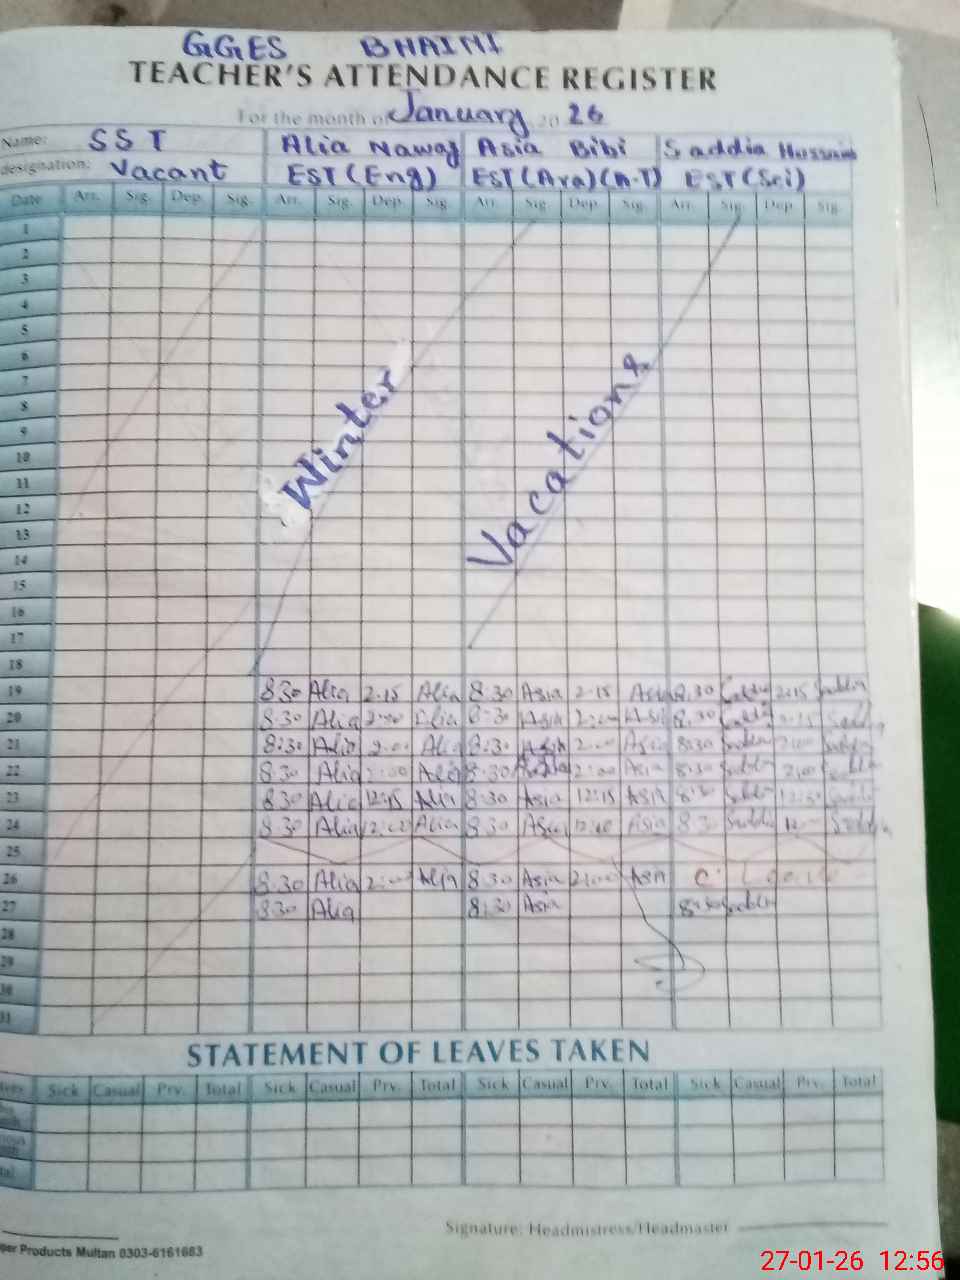 GGES BHAINI
TEACHER'S ATTENDANCE REGISTER
For the month of January 20 26
Name: SST Alia Nawaz Asia Bibi Saddia Hussain
designation: Vacant EST (Eng) EST (Ara) (A.T) EST (Sci)
Date Arr. Sig. Dep. Sig. Arr. Sig. Dep. Sig. Arr. Sig. Dep. Sig. Arr. Sig. Dep. Sig.
1
2
3
4
5
6
7
8
9
10
11
12
13
14
15
16
17
18
Winter
Vacations
19 8:30 Alia 2:15 Alia 8:30 Asia 2:15 Asia 8:30 2:15 Saddia
20 8:30 Alia 8:30 Asia Asia 8:30 2:15
21 8:30 Alia 2:00 Alia 8:30 Asia 2:00 Asia 8:30 2:00
22 8:30 Alia 2:00 Alia 8:30 Asia 2:00 Asia 8:30 2:00
23 8:30 Alia 12:15 Alia 8:30 Asia 12:15 Asia
24 8:30 Alia 12:00 Alia 8:30 Asia Asia 8:30
25
26 8:30 Alia 2:00 Alia 8:30 Asia 2:00 Asia C. Leave
27 8:30 Alia 8:30 Asia 8:30
28
29
30
31
STATEMENT OF LEAVES TAKEN
Sick Casual Prv. Total Sick Casual Prv. Total Sick Casual Prv. Total Sick Casual Prv. Total
Signature: Headmistress/Headmaster
Products Multan 0303-6161683
27-01-26 12:56